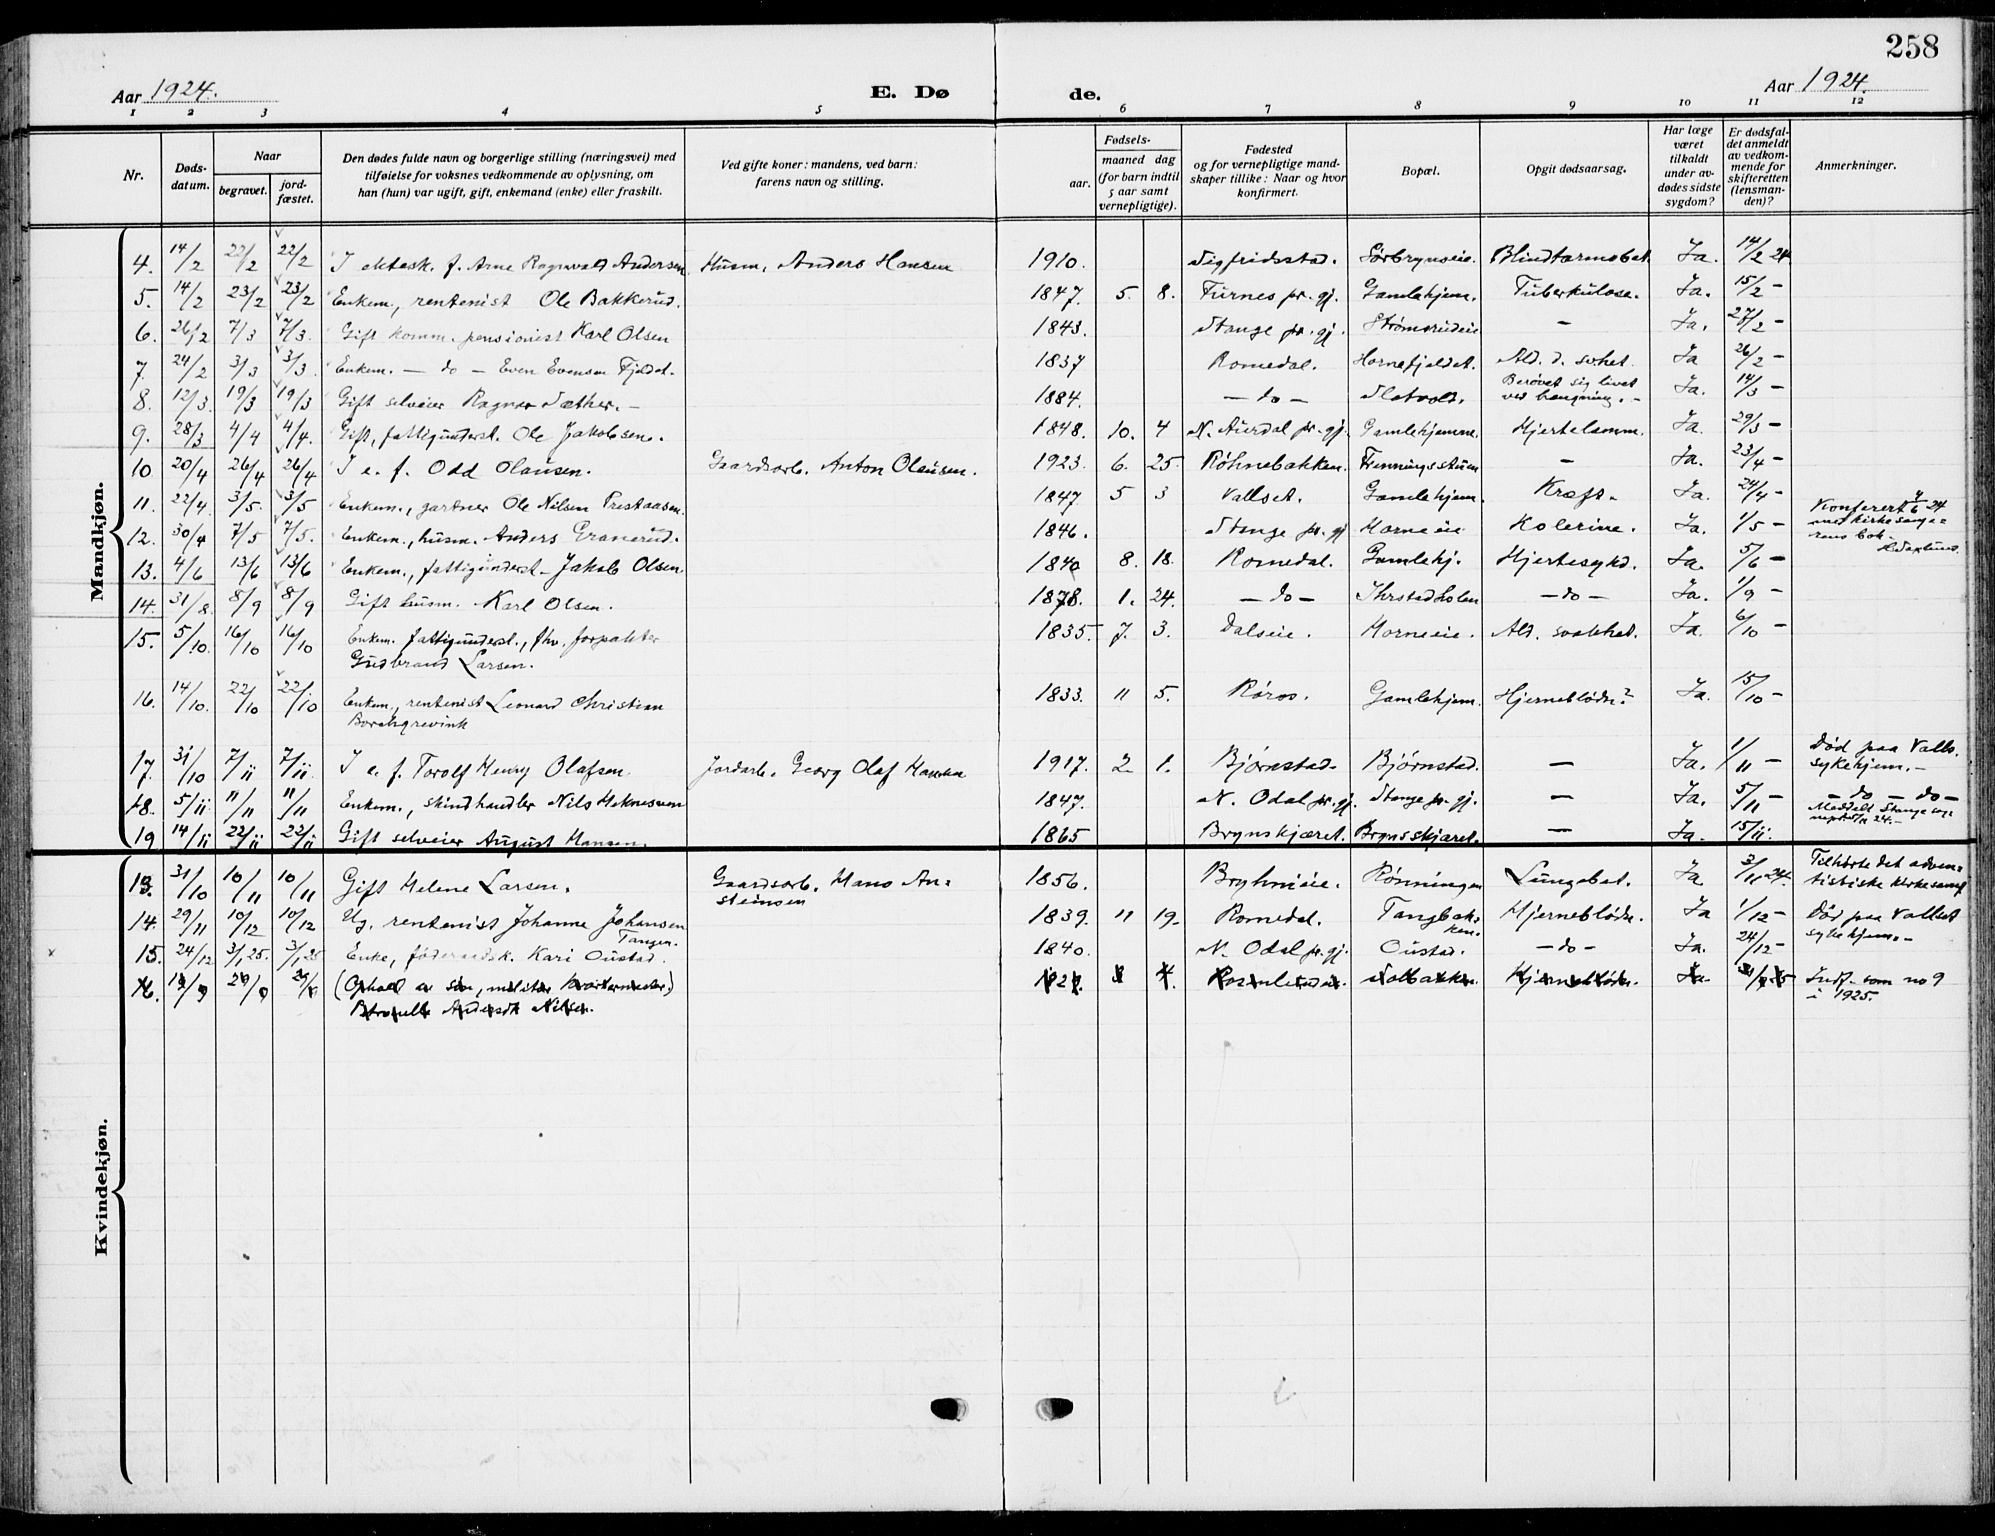 258
Aar 1924. E. Dø de. Aar 1924.
1 2 3 4 5 6 7 8 9 10 11 12
Nr. Døds-datum. Naar begravet. jord-fæstet. Den dødes fulde navn og borgerlige stilling (næringsvei) med tilføielse for voksnes vedkommende av oplysning, om han (hun) var ugift, gift, enkemand (enke) eller fraskilt. Ved gifte koner: mandens, ved barn: farens navn og stilling. Fødsels- aar. maaned dag (for barn indtil 5 aar samt vernepligtige). Fødested og for vernepligtige mand-skaper tillike: Naar og hvor konfirmert. Bopæl. Opgit dødsaarsag. Har læge været tilkaldt under av-dødes sidste sygdom? Er dødsfal-det anmeldt av vedkom-mende for skifteretten (lensman-den)? Anmerkninger.
Mandkjøn.
4. 14/2 22/2 22/2 I ektesk. f. Arne Ragnvald Andersen Husm. Anders Hansen 1910. Sigfridsstad. Sørbrynseie. Blindtarmsbet. Ja. 14/2 24
5. 14/2 23/2 23/2 Enkem., rentenist Ole Bakkerud. 1847. 5. 8. Furnes pr. gj. Gamlehjem. Tuberkulose. Ja. 15/2 -
6. 26/2 7/3 7/3 Gift komm. pensionist Karl Olsen 1843. Stange pr. gj. Strømsrudeie - Ja. 27/2 -
7. 24/2 3/3 3/3 Enkem. - do - Even Evensen Fjeldet. 1837 Romedal. Hornefjeldet. Ald. d. svhet. Ja 26/2 -
8. 12/3. 19/3 19/3 Gift selveier Ragnar Sæther. - 1884. - do - Slatvold. Berøvet sig livet ved hængning. - Ja. 14/3 -
9. 28/3 4/4 4/4. Gift, fattigunderst. Ole Jakobsen. 1848. 10. 4 N. Aurdal pr. gj. Gamlehjemme. Hjertelamm. Ja. 29/3 -
10 20/4 26/4 26/4 I e. f. Odd Olausen. Gaardsarb. Anton Olausen. 1923. 6. 25. Røhnebakken. Frenningsstuen - Ja. 23/4 -
11. 22/4. 3/5. 3/5 Enkem., gartner Ole Nilsen Prestaasen. 1847. 5 3 Vallset. Gamlehjem. Kræft. Ja. 24/4 -
12. 30/4 7/5 7/5. Enkem., husm. Anders Granerud. 1846. Stange pr. gj Horneeie Kolerine. Ja. 1/5 - Konferert 4/6 24 med kirkesange=rens bok
13. 4/6 13/6 13/6 Enkem., fattigunderst. Jakob Olsen 1840 8. 18. Romedal. Gamlehj. Hjertesykd. Ja. 5/6 -
14. 31/8. 8/9 8/9 Gift husm. Karl Olsen. 1878. 1. 24. - do - Ihrstadholen - do - Ja. 1/9 -
15. 5/10. 16/10 16/10 Enkem. fattigunderst., fhv. forpakter 1835 7. 3. Dalseie. Horneeie. Ald. svakhet. Ja. 6/10 -
Gudbrand Larsen.
16. 14/10. 22/10 22/10 Enkem., rentenist Leonard Christian 1833. 11 5. Røros. Gamlehjem. Hjerneblødn? Ja. 15/10 -
Borchgrevink
17. 31/10 7/11 7/11. I e. f. Torolf Henry Olafsen. Jordarb. Georg Olaf Hansen 1917. 2. 1. Bjørnstad. Bjørnstad. - Ja. 1/11 - Død paa Valls. sykehjem. -
18. 5/11 11/11 11/11 Enkem., skindhandler Nils Meknesven 1847. N. Odal pr. gj. Stange pr. gj. - Ja. 5/11 - - do - do -
19 14/11 22/11 22/11 Gift selveier August Hansen. 1865 Brynskjæret. Brynsskjæret. - Ja. 15/11. Meddelt Stange sog=
Kvindekjøn.
13. 31/10 10/11 10/11 Gift Helene Larsen. Gaardsarb. Hans An= steinsen 1856. Bryhnieie. Rønningen Lungebet. Ja 3/11 24. Tilhørte det adven=tistiske kirkesamf
14. 29/11 10/12 10/12 Ug. rentenist Johanne Johansen Tangen. 1839. 11 19. Romedal. Tangbak=ken. Hjerneblødn. Ja 1/12 - Død paa Vallset sykehjem. -
15. 24/12 3/1 25. 3/1 25 Enke, føderaadsk. Kari Oustad. 1840. N. Odal pr. gj. Oustad. - do - Ja. 24/12 -
16. Hjerneblødn. Ja. Indf. som no 9 i 1925.